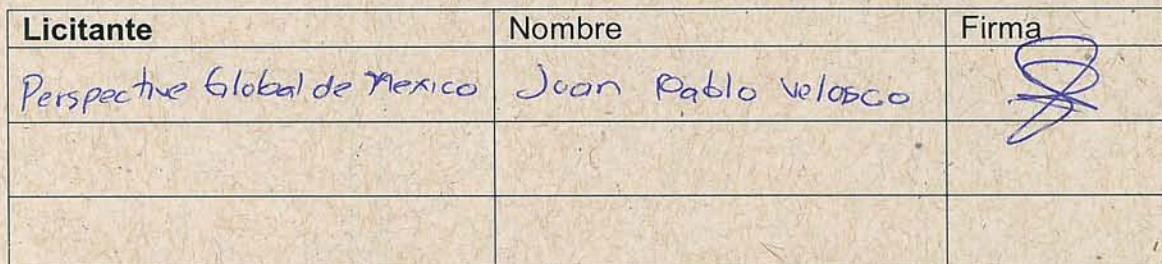 Licitante Nombre Firma
Perspective Global de Mexico Juan Pablo Velasco